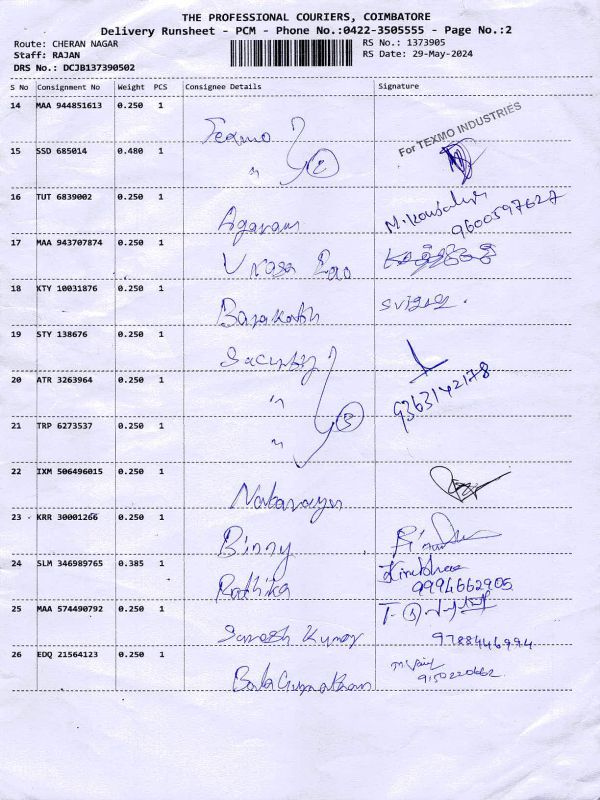 THE PROFESSIONAL COURIERS, COIMBATORE
Delivery Runsheet - PCM - Phone No.:0422-3505555 - Page No.:2
Route: CHERAN NAGAR
RS No.: 1373905
Staff: RAJAN
RS Date: 29-May-2024
DRS No.: DCJB137390502
S No Consignment No Weight PCS Consignee Details Signature
14 MAA 944851613 0.250 1
Texmo
For TEXMO INDUSTRIES
15 SSD 685014 0.480 1
" 2
16 TUT 6839002 0.250 1
Agaram
9600597627
17 MAA 943707874 0.250 1
18 KTY 10031876 0.250 1
19 STY 138676 0.250 1
20 ATR 3263964 0.250 1
" 3
9363142178
21 TRP 6273537 0.250 1
"
22 IXM 506496015 0.250 1
23 KRR 30001266 0.250 1
Binny
24 SLM 346989765 0.385 1
Radhika
9994662905
25 MAA 574490792 0.250 1
Kumar
9788446994
26 EDQ 21564123 0.250 1
9150220662